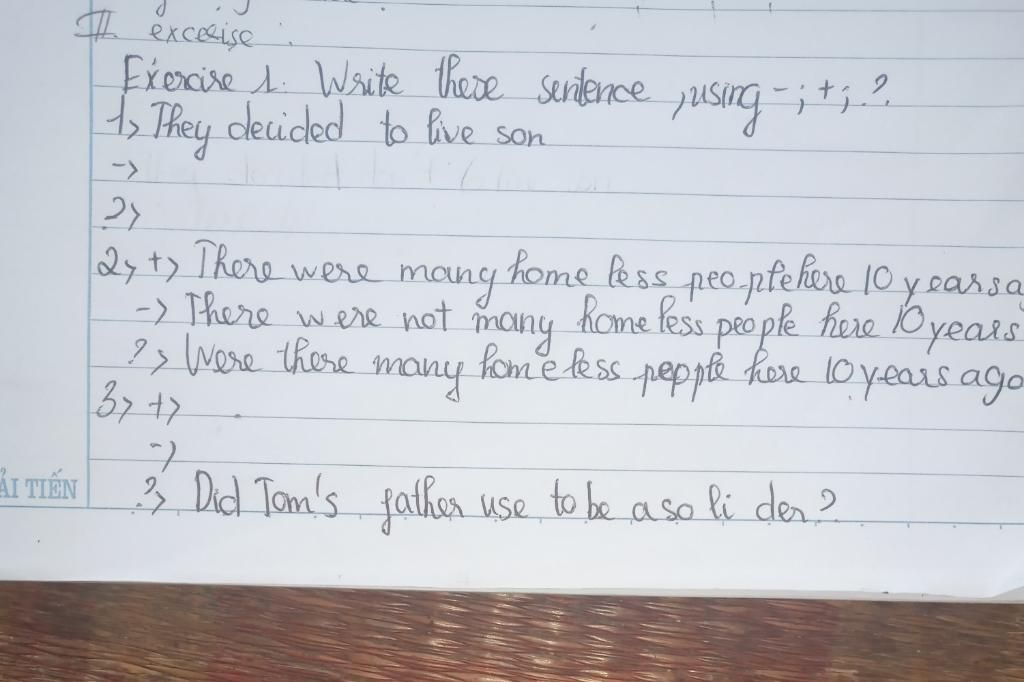 II. excecise.
Exercise 1. Write these sentence, using - ; + ; ?
1> They decided to live son
->
?>
2> +> There were many home less people here 10 years a
-> There were not many homeless people here 10 years
?> Were there many homeless pepple here 10 years ago
3> +> .
->
?> Did Tom's father use to be a so li der?
ẢI TIẾN